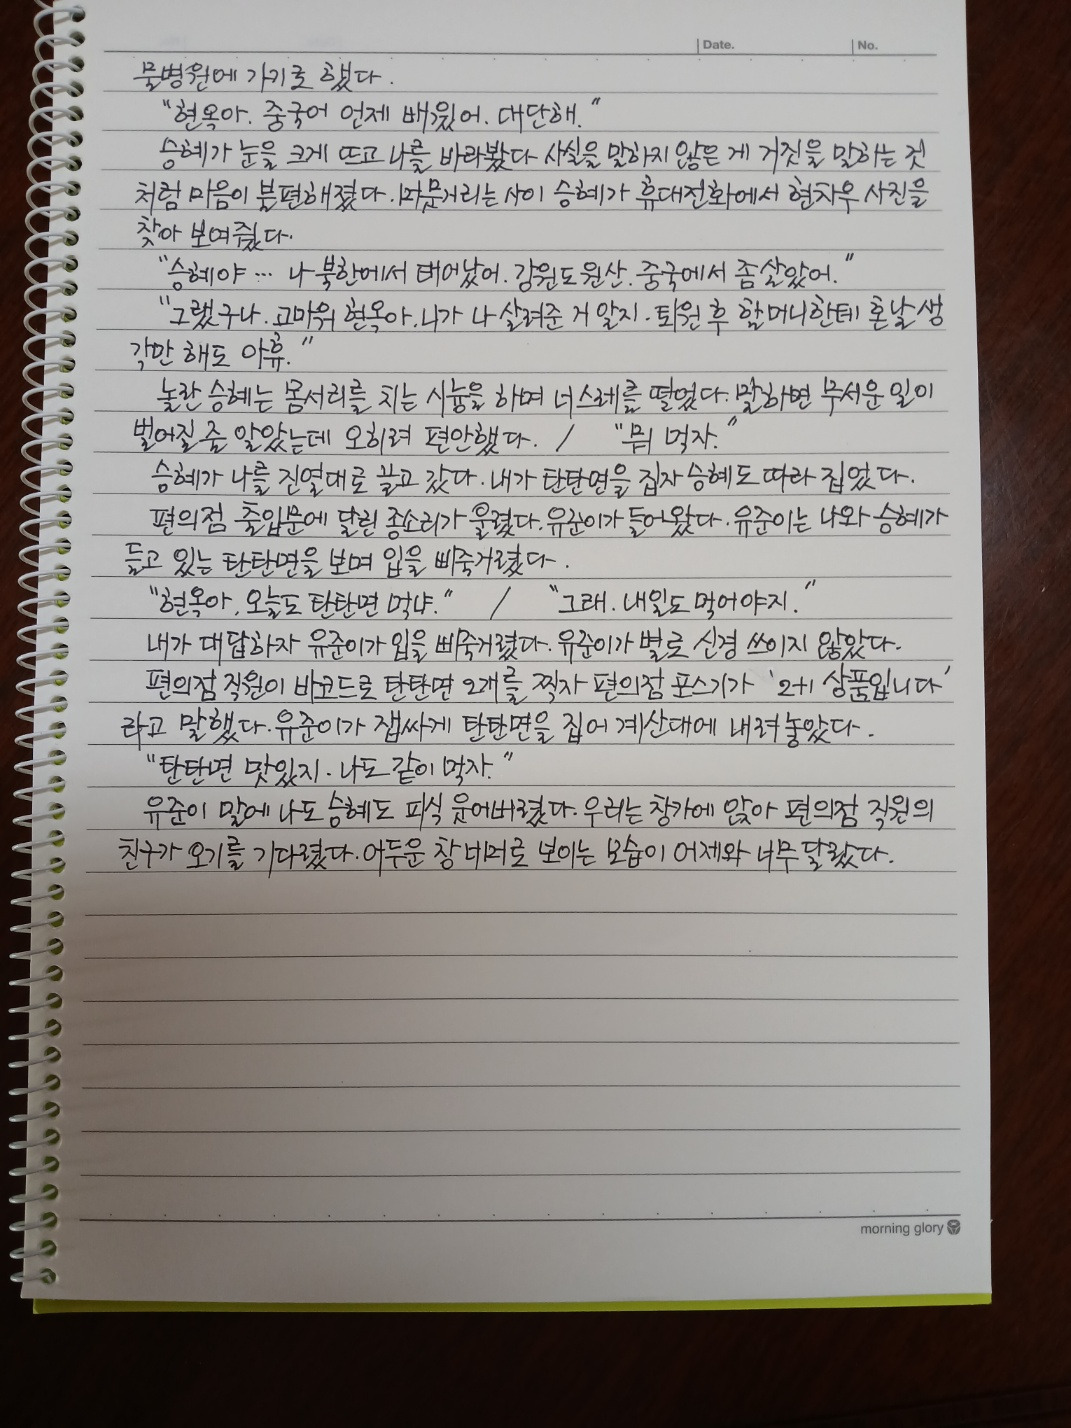 Date. No.
물병원에 가기로 했다.
"현옥아. 중국어 언제 배웠어. 대단해."
승혜가 눈을 크게 뜨고 나를 바라봤다. 사실을 말하지 않은 게 거짓을 말하는 것
처럼 마음이 불편해졌다. 머뭇거리는 사이 승혜가 휴대전화에서 현차우 사진을
찾아 보여줬다.
"승혜야… 나 북한에서 태어났어. 강원도 원산. 중국에서 좀 살았어."
"그랬구나. 고마워 현옥아. 니가 나 살려준 거 알지. 퇴원 후 할머니한테 혼날 생
각만 해도 아휴."
놀란 승혜는 몸서리를 치는 시늉을 하며 너스레를 떨었다. 말하면 무서운 일이
벌어질 줄 알았는데 오히려 편안했다. / "뭐 먹자."
승혜가 나를 진열대로 끌고 갔다. 내가 탄탄면을 집자 승혜도 따라 집었다.
편의점 출입문에 달린 종소리가 울렸다. 유준이가 들어왔다. 유준이는 나와 승혜가
들고 있는 탄탄면을 보며 입을 삐죽거렸다.
"현옥아, 오늘도 탄탄면 먹냐." / "그래. 내일도 먹어야지."
내가 대답하자 유준이가 입을 삐죽거렸다. 유준이가 별로 신경 쓰이지 않았다.
편의점 직원이 바코드로 탄탄면 2개를 찍자 편의점 포스기가 '2+1 상품입니다'
라고 말했다. 유준이가 잽싸게 탄탄면을 집어 계산대에 내려놓았다.
"탄탄면 맛있지. 나도 같이 먹자."
유준이 말에 나도 승혜도 피식 웃어버렸다. 우리는 창가에 앉아 편의점 직원의
친구가 오기를 기다렸다. 어두운 창 너머로 보이는 모습이 어제와 너무 달랐다.
morning glory